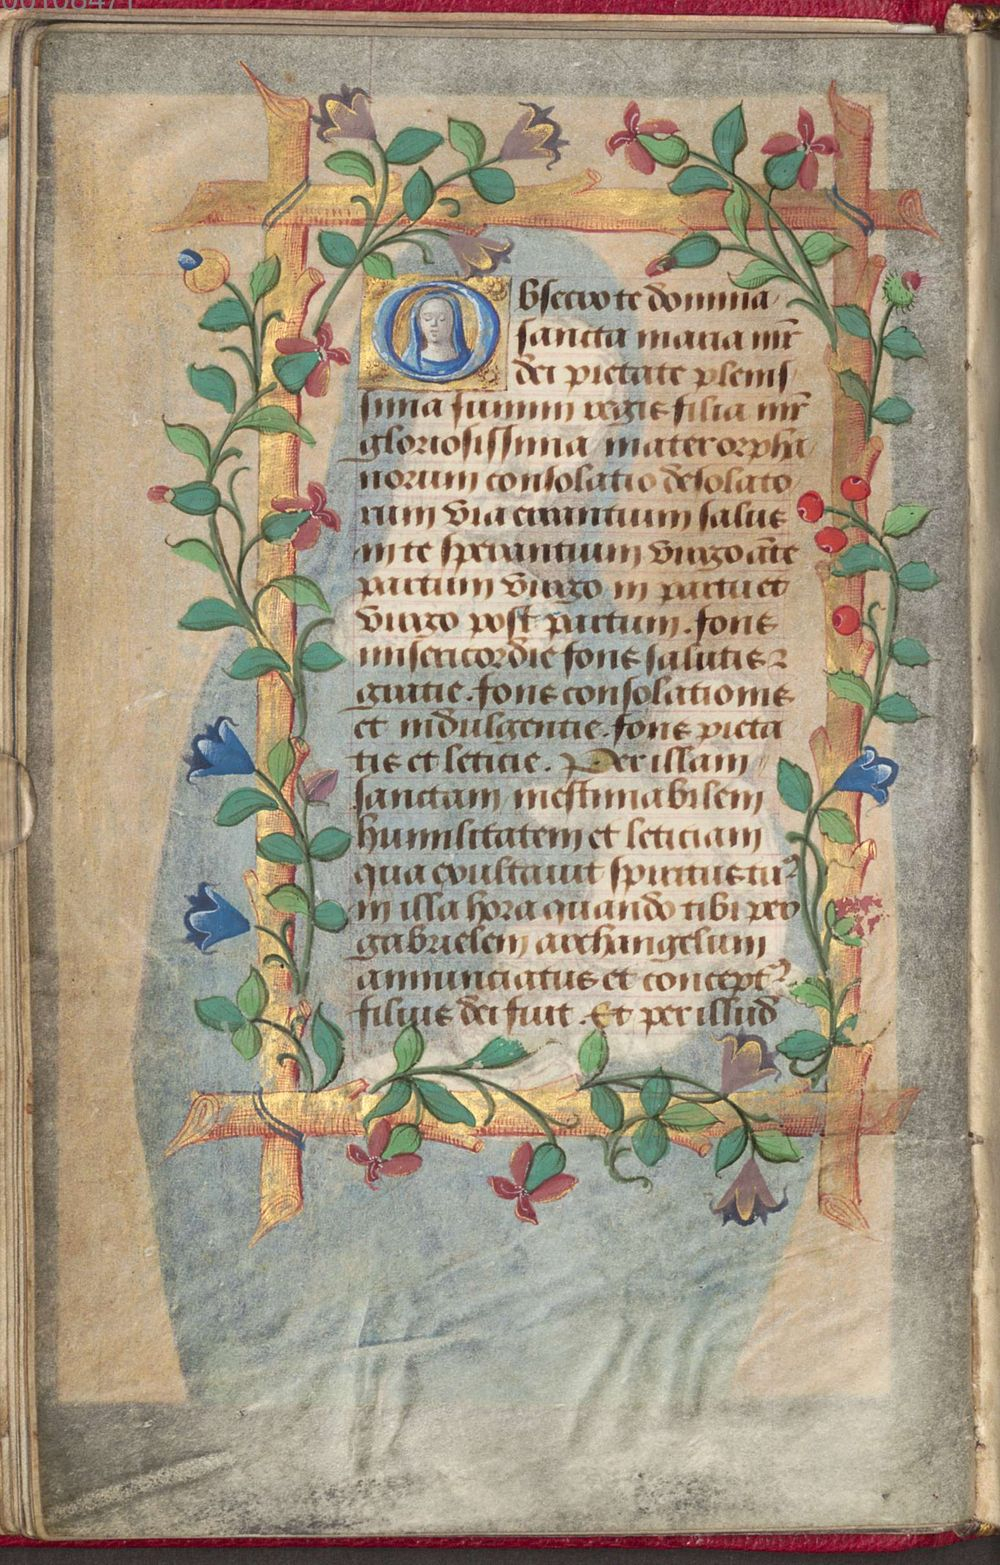 00108471
Obsecro te domina
sancta maria mr̄
dei pietate plenis
sima summi regis filia mr̄
gloriosissima mater orpha
norum consolatio desolato
rum via errantium salus
in te sperantium virgo āte
partum virgo in partu et
virgo post partum. fons
misericordie fons salutis ⁊
gratie. fons consolationis
et indulgentie. fons pieta
tis et leticie. Per illam
sanctam inestimabilem
humilitatem et leticiam
qua exultauit spiritus tuꝰ
in illa hora quando tibi per
gabrielem archangelum
annunciatus et conceptꝰ
filius dei fuit. Et per illud